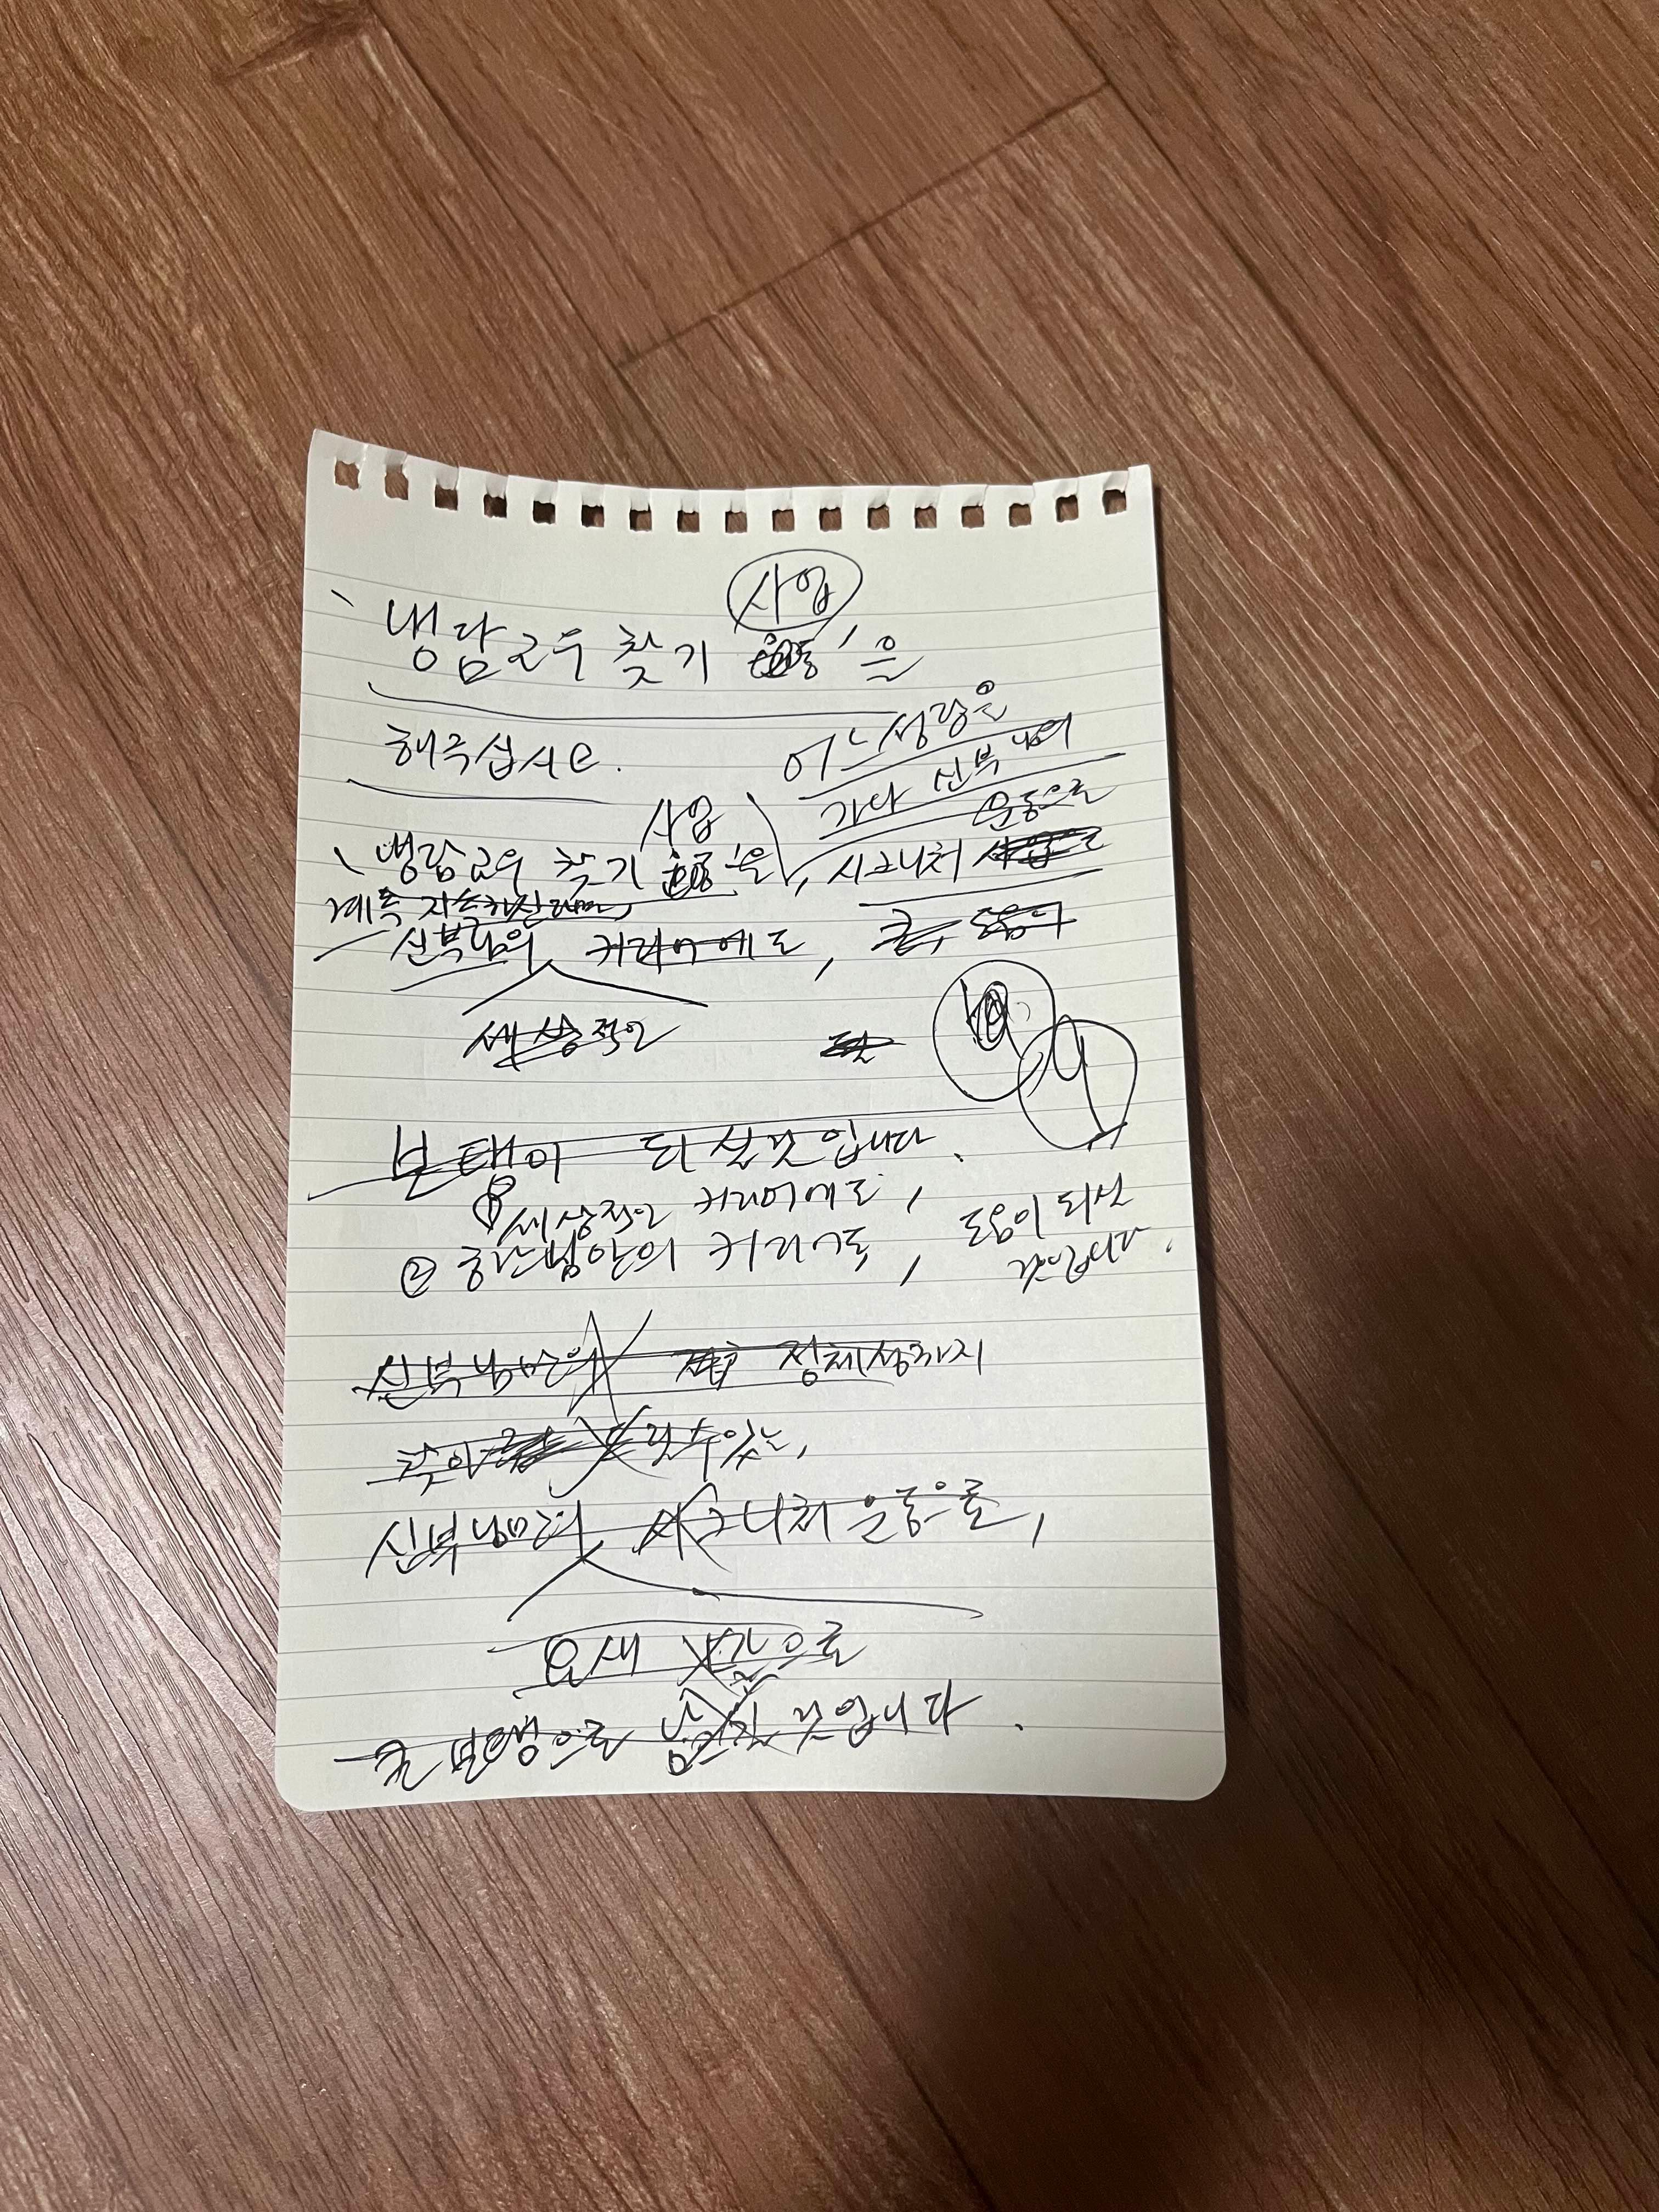 사업
냉담교우 찾기 운동'은
해주십시오.
어느 성당을
가나 신부님의
운동으로
사업
냉담교우 찾기 운동'을, 시그니처
계속 지속하신다면,
신부님의 커리어에도, 큰 도움이
세상적인
보탬이 되실 것입니다.
세상적인 커리어에도,
② 하느님 안의 커리어도, 도움이 되실
것입니다.
신부님만의 정체성까지
찾아 드릴 수 있는,
신부님만의 시그니처 운동으로,
요새
큰 보탬으로 것입니다.